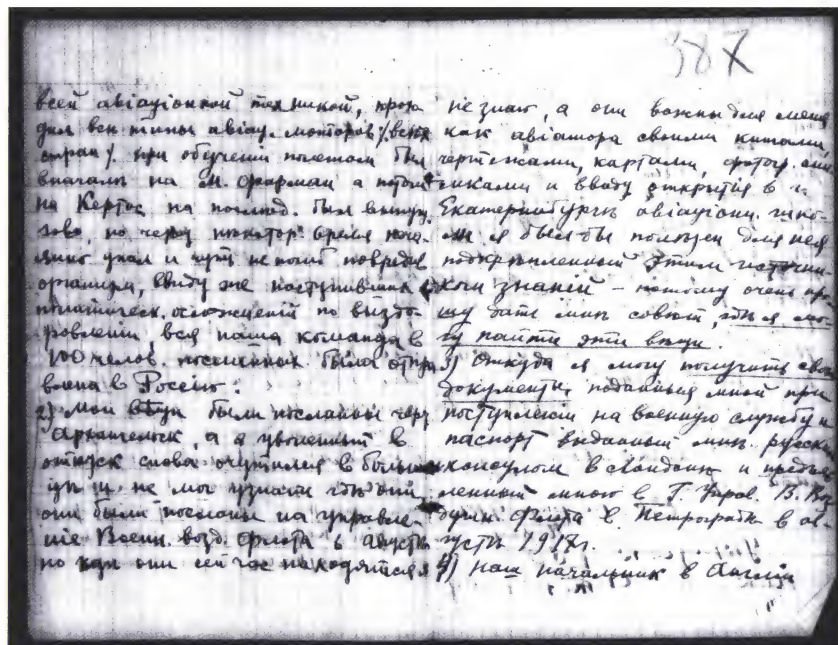 387
всей авіаціонной техникой, прохо
дил все типы авіац. моторов /всех
стран/. при обучении полетам был
вначале на М. Фарман а потом
на Кертис, на послед. был
но через некотор. время неча-
янно упал и чуть не погиб повредив
организм, ввиду же наступивших
политическ. осложнений по выздо-
ровлении, вся наша команда в
100 челов. посаженная была отпра
влена в Россию.
2) Мои вещи были посланы чрез
Архангельск, а я уволенный в
отпуск снова очутился в больни
це и не мог узнать где они,
они были посланы на управле-
ние Военн. возд. флота в августе
но где они сейчас находятся я
не знаю, а они важны для меня
как авіатора своими книгами
чертежами, картами, фотогр. сни
мками и ввиду открытія в
Екатеринбурге авіаціонн. шко-
лы я был бы полезен для нея
подкрепленный этим источни
ком знаній – потому очень про
шу дать мне совет, где я мо-
гу найти эти вещи.
3) Откуда я могу получить свои
документы, поданныя мной при
поступлении на военную службу и
паспорт выданный мне русск.
консулом в Лондоне и предъяв
ленный мною в Г. Управ. В. Воз
душн. Флота в Петрограде в ав
густе 1918 г.
4) Наш начальник в Англіи